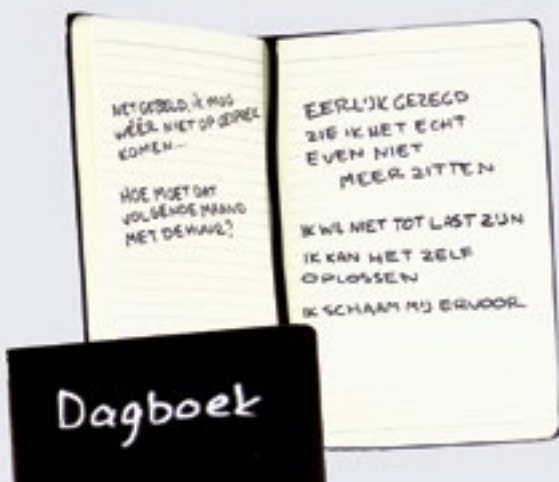 NET GEBELD, IK MAG
WÉÉR NIET OP GESPREK
KOMEN...
HOE MOET DAT
VOLGENDE MAAND
MET DE HUUR?
EERLIJK GEZEGD
ZIE IK HET ECHT
EVEN NIET
MEER ZITTEN
IK WIL NIET TOT LAST ZIJN
IK KAN HET ZELF
OPLOSSEN
IK SCHAAM MIJ ERVOOR
Dagboek